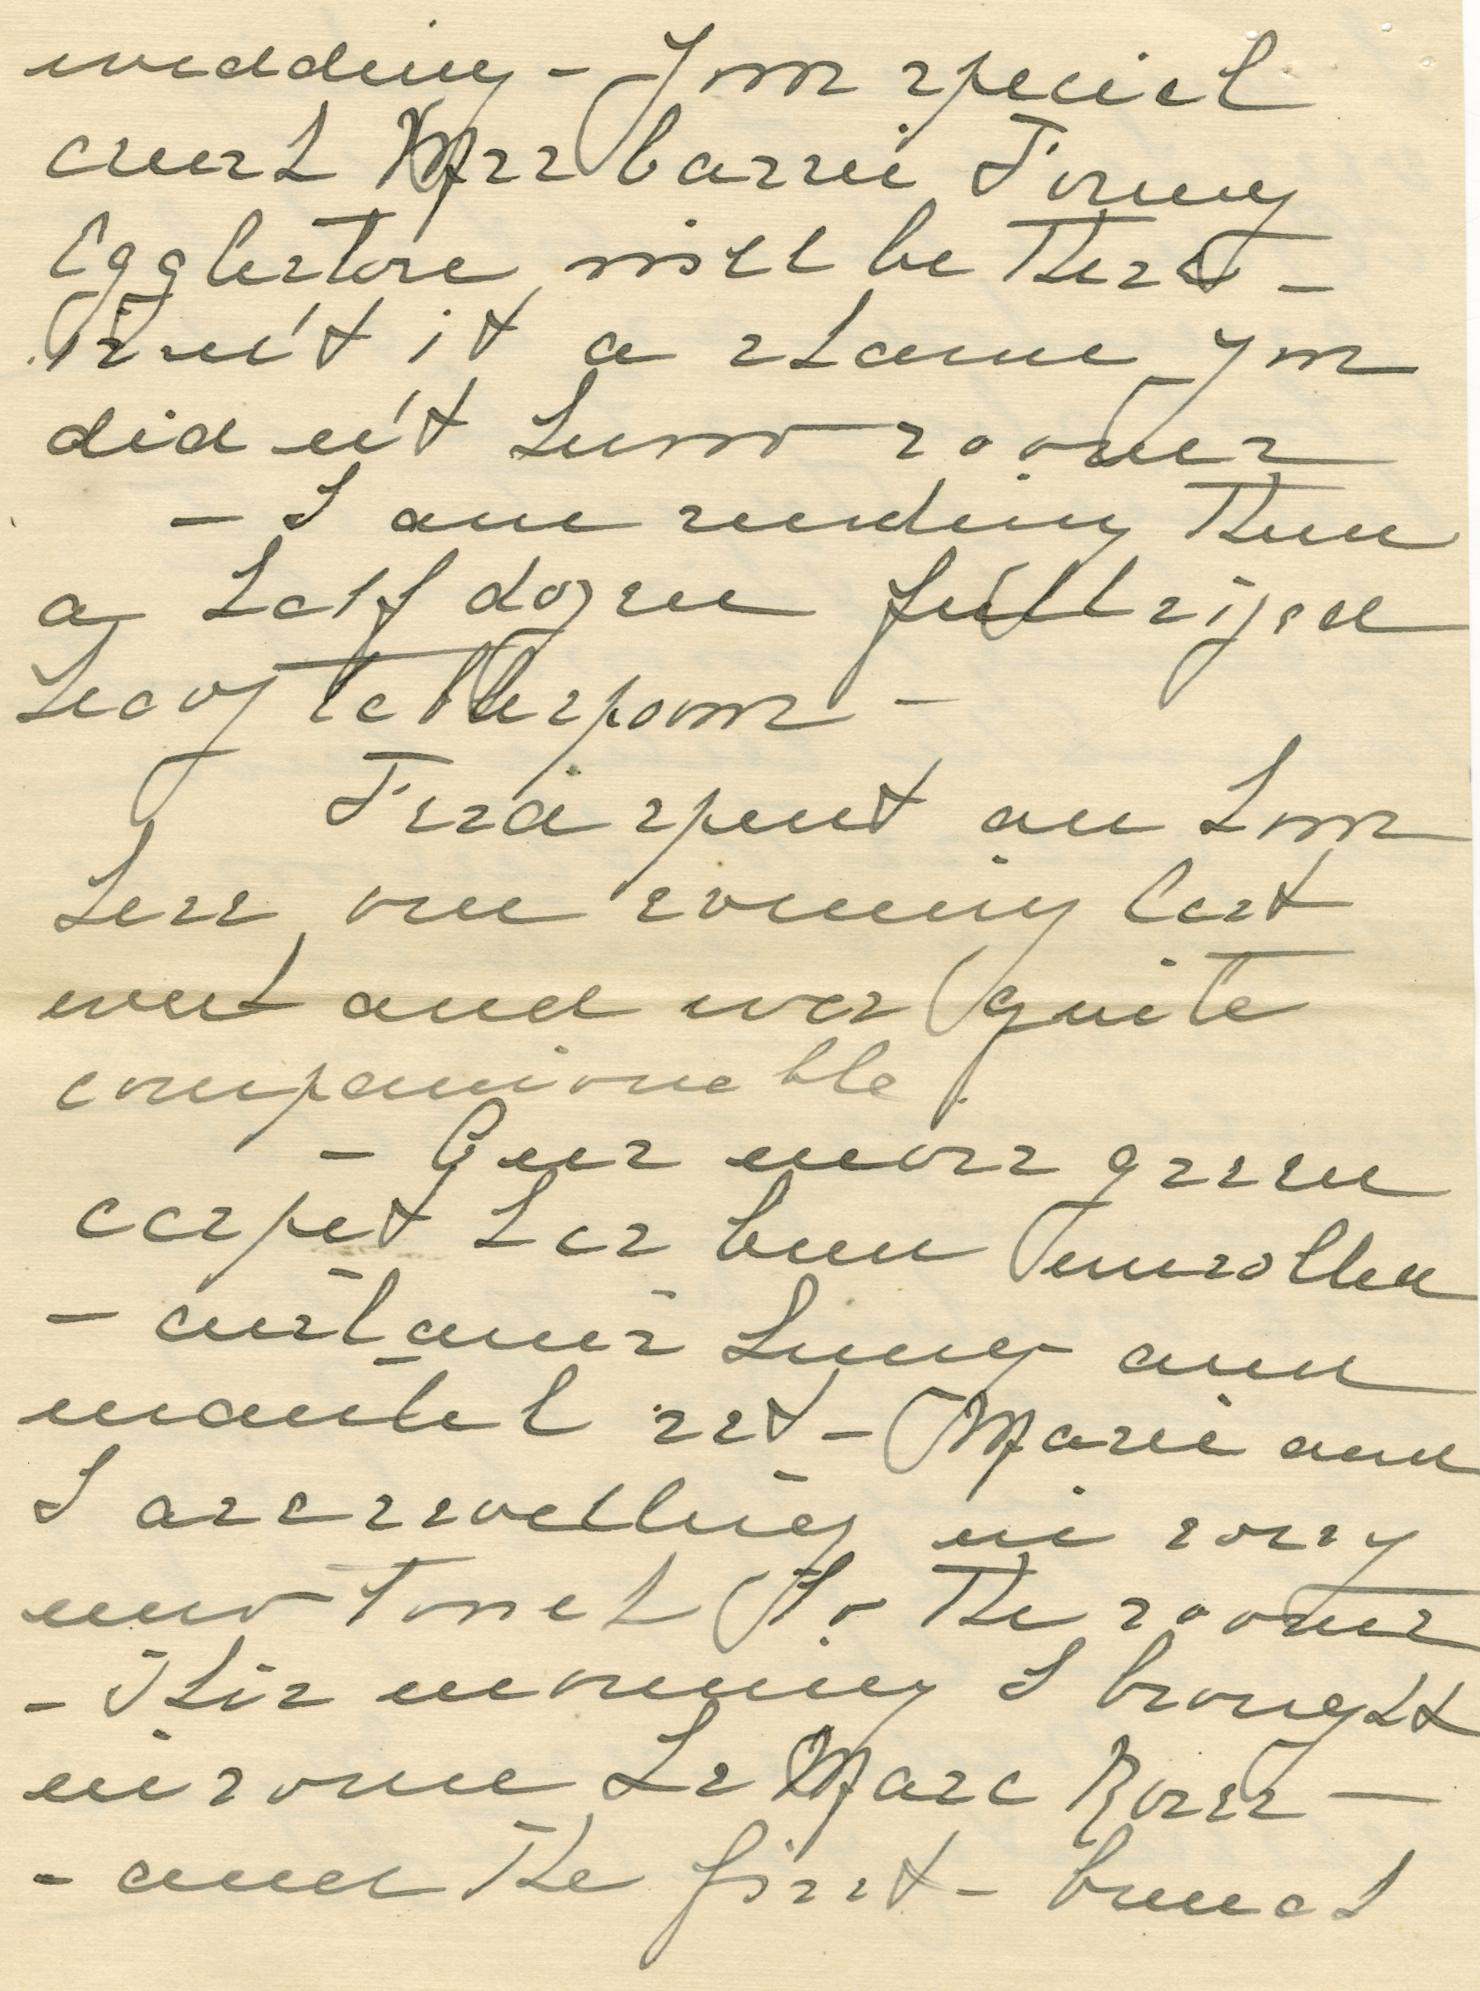 wedding - Your special
crush Mrs Carrie Torrey
Egglestone will be there -
Isn't it a shame you
did n't know sooner
- I am sending them
a half dozen full sized
heavy tablespoons -
Fred spent an hour
here one evening last
week and was quite
companionable.
- Our moss green
carpet has been unrolled
- curtains hung and
mantel set - Marie and
I are revelling in rosy
new to the room
- This morning I brought
in some La Marc Roses -
- and the first - bunch